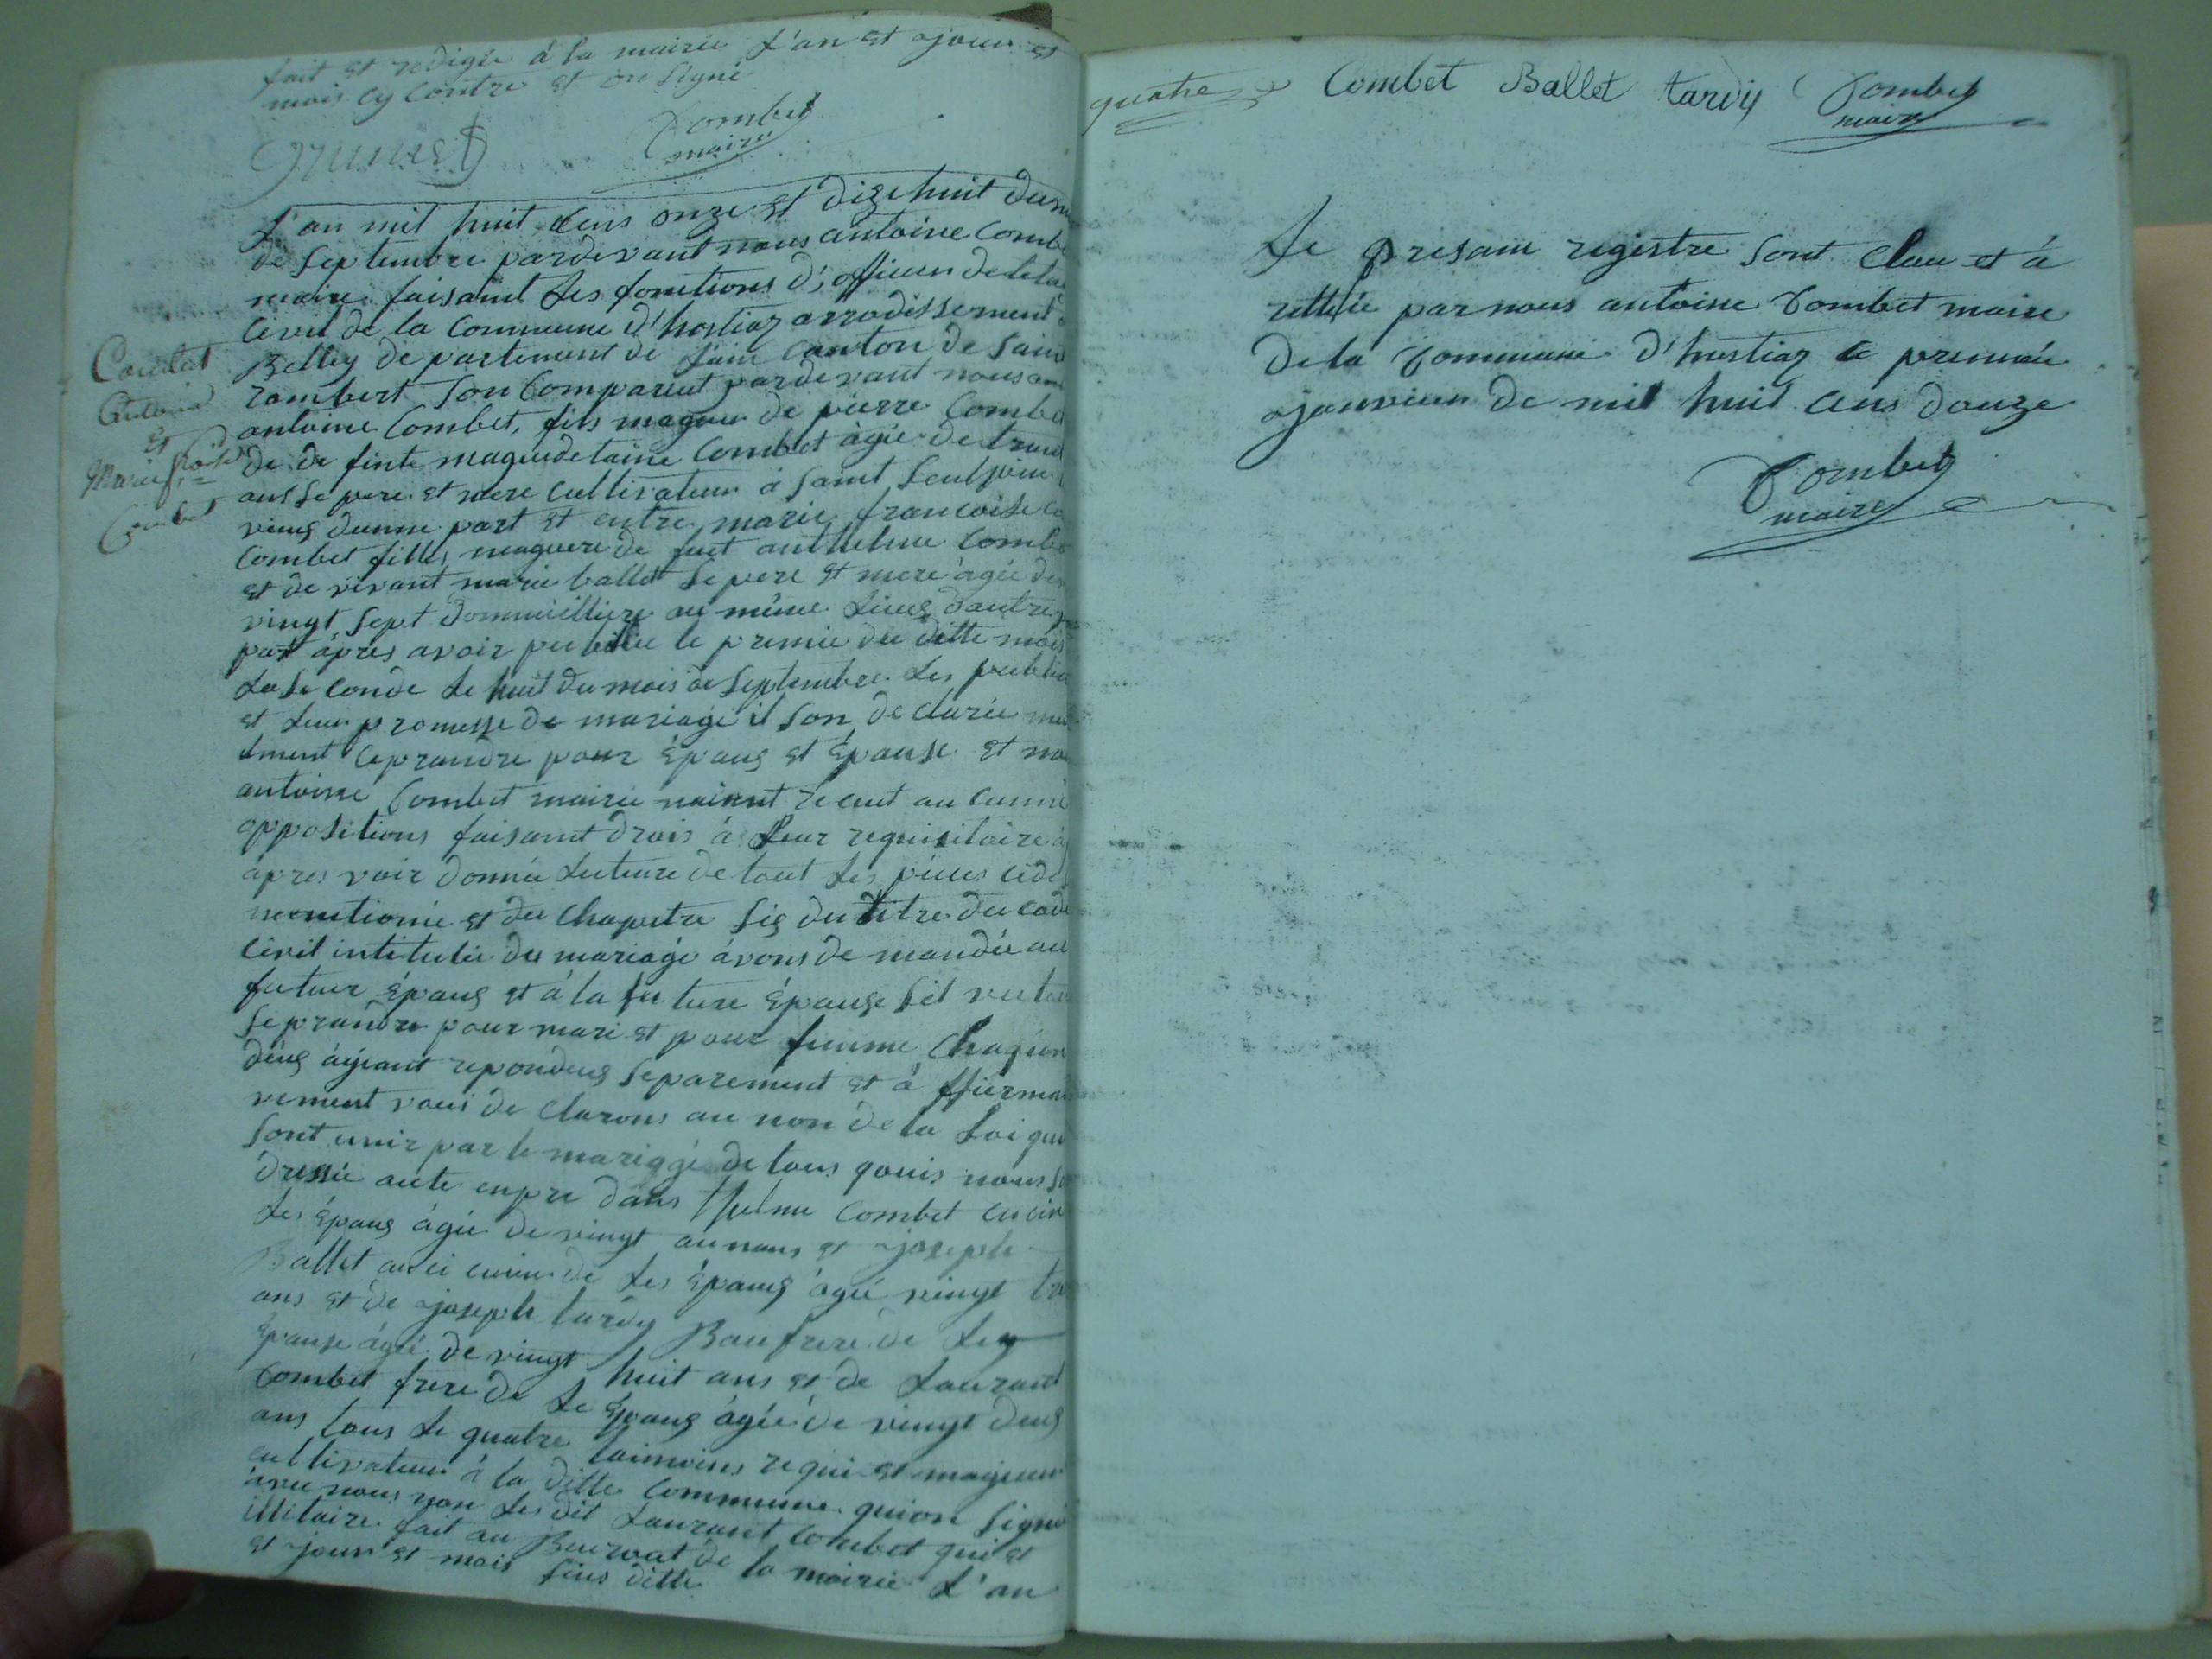 fait et redigée á la mairie L'an et ajour et
mois cy contre et on signé
Combet
maire
L'an mil huit cens onze et dizehuit du
de Septembre pardevant nous antoine Combe
maire faisaint les fonctions d'officier de leta
Civil de la Commune d'hostiaz arrodissement
Belley departement de L'ain Canton de Sain
rambert Son Comparent pardevant nous
antoine Combet, fils mageur de pierre Combe
de de finte maguedelaine Combet àgée de trant
ans se pere et mere cultivateur à saint
vieus dunne part et entre marie francoise
Combet fille mageure de fuet anthelme Combe
et de vivant marie ballet se pere et mere àgée de
vingt sept dommicilliere au même Lieus dautre
part àpres avoir publiée le premie du ditte mois
La se conde le huit du mois de Septembre Les publi
et Leur promesse de mariage il son de clarée
ament ce prandre pour épaus et épause et no
antoine Combet mairie naient recuet aucunne
oppositions faisamt drois à Leur requisitoire
àpres voir donnée Lecteure de tout Les pieces cide
menttionie et du Chapitre sis du titre du code
Civil intitulée du mariage avons de mandée au
future épaus et à la future épause sil veule
se prandre pour mari et pour femme Chaquin
deus àyeant repondeus separement et à ffierma
vement vous de clarons au non de la Loi que
sont unir par le mariage de tous qouis nous
dressée acte enpre dans thelme Combet cusin
Les épaus àgée de vingt aunans et ajoseph
Ballet auci cusin de Les épaus àgée vingt tra
ans et de ajoseph tardy Baufrere de Les
épause àgée de vingt huit ans et de Laurant
Combet frere de Le épaus àgée de vingt deus
ans tous Le quatre taimoins requi et mageur
cultivateur à la ditte Commune quion signé
àvec nous non Les dit Laurant Combet qui et
illitaire fait au Beurreat de la mairie L'an
et ajour et mois sius ditte
Combet
Antoine
et
Marie
Combet
quatre Combet Ballet tardy Combet
maire
Le presain registre sont Clau et à
rettée par nous antoine Combet maire
De la Commune D'hostiaz le premiée
ajanvier de mil huit cens douze
Combet
maire